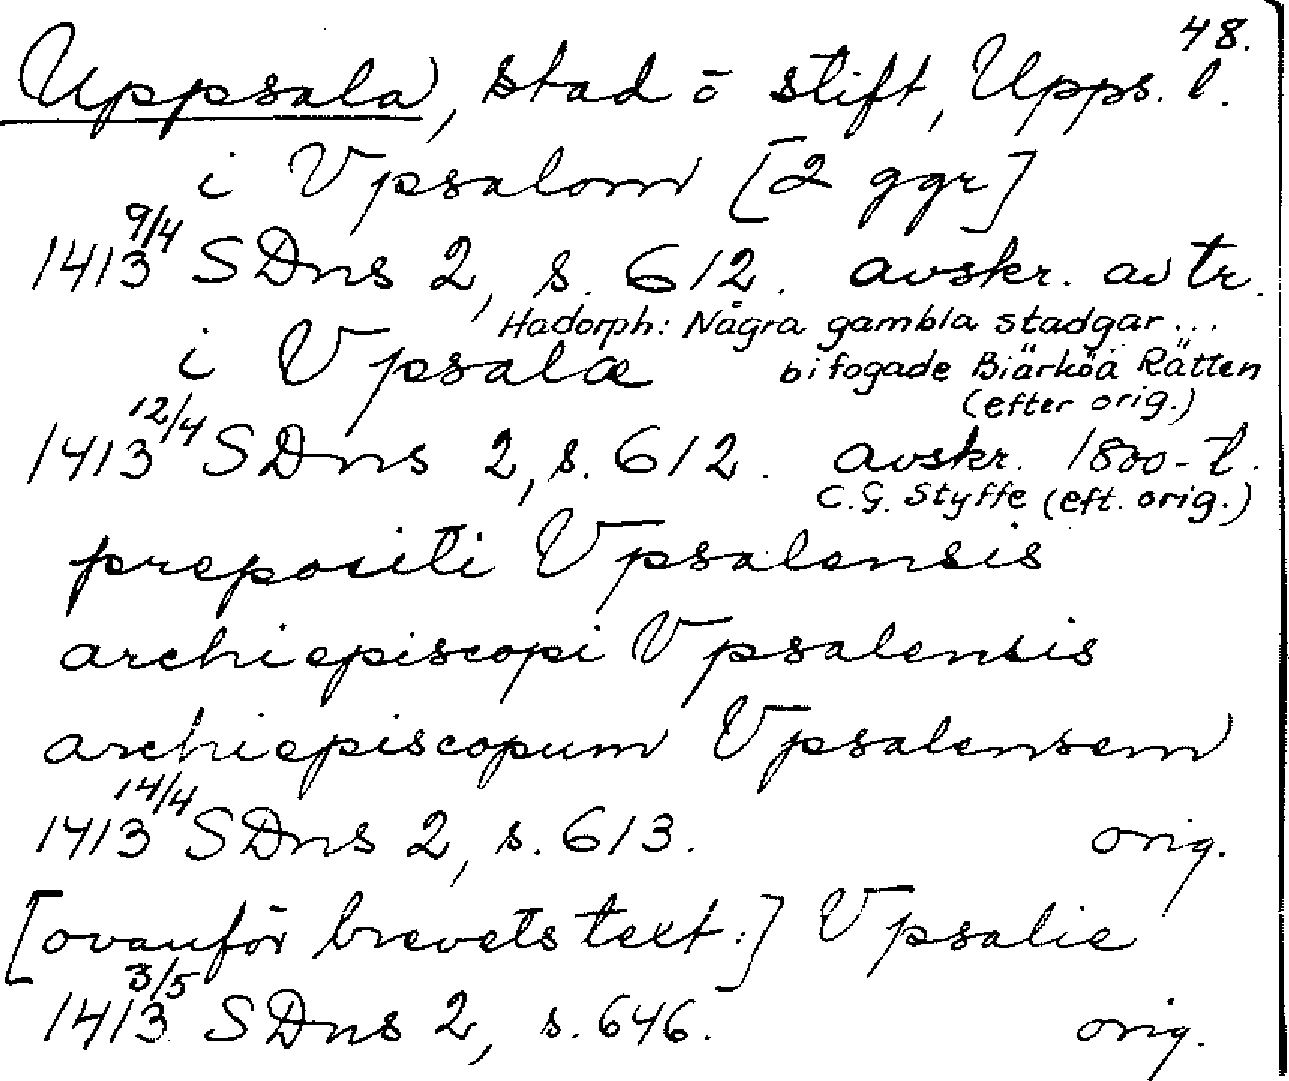 48.
Uppsala, stad o stift, Upps. l.
i Vpsalom [2 ggr]
1413 9/4 SDns 2, s. 612. avskr. av tr.
Hadorph: Några gambla stadgar...
i Vpsalæ bifogade Biärköä Rätten
(efter orig.)
1413 12/4 SDns 2, s. 612. avskr. 1800-t.
C.G. Styffe (eft. orig.)
prepositi Vpsalensis
archiepiscopi Vpsalensis
archiepiscopum Vpsalensem
1413 14/4 SDns 2, s. 613. orig.
[ovanför brevets text:] Vpsalie
1413 3/5 SDns 2, s. 646. orig.